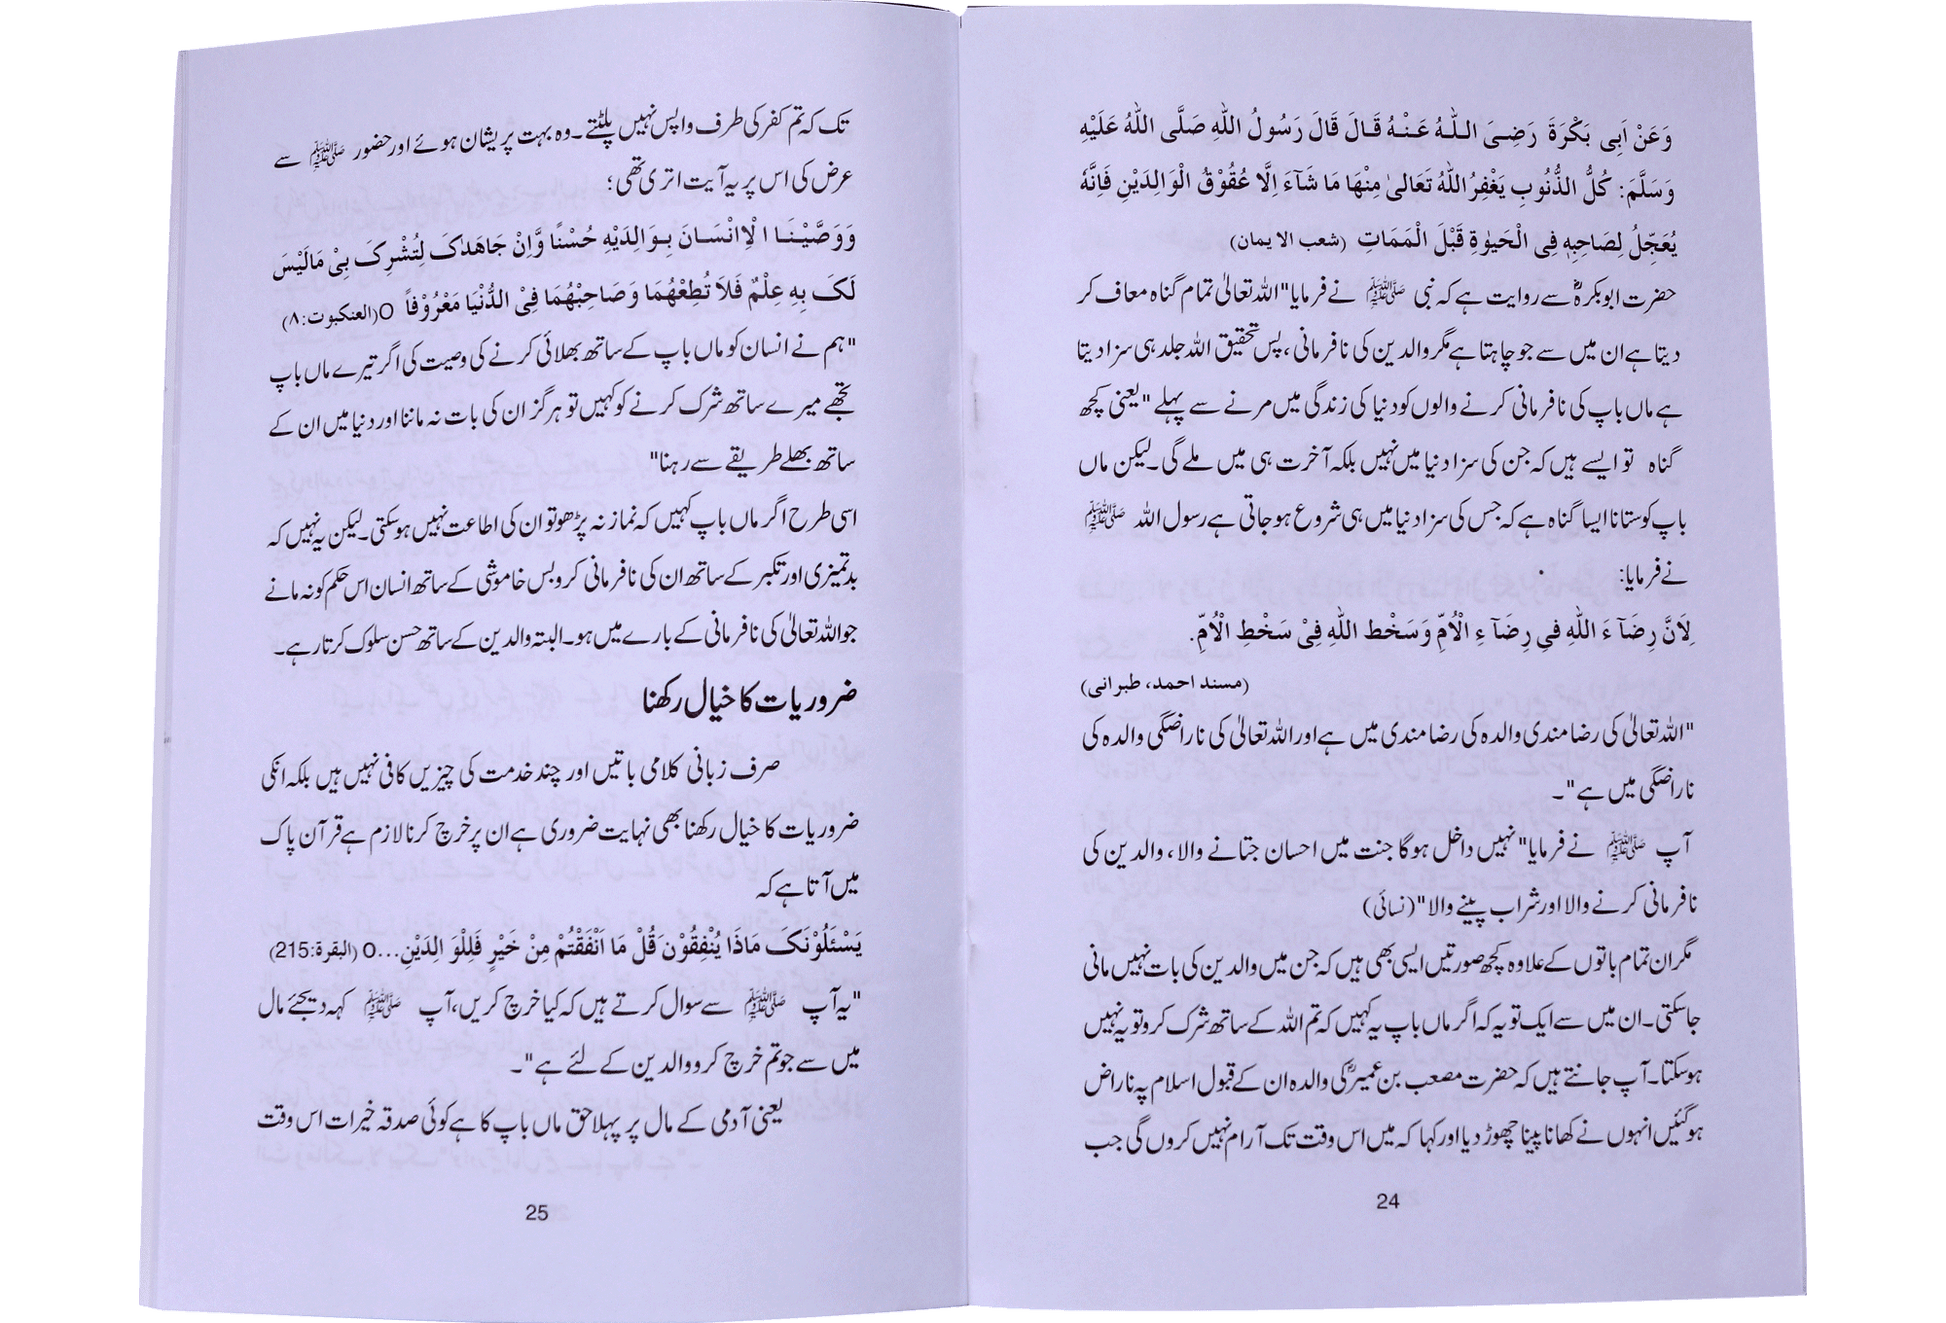 وَعَنْ اَبِی بَكْرَةَ رَضِیَ اللّٰهُ عَنْهُ قَالَ قَالَ رَسُولُ اللّٰهِ صَلَّی اللّٰهُ عَلَیْهِ
وَسَلَّمَ: كُلُّ الذُّنُوبِ یَغْفِرُ اللّٰهُ تَعَالیٰ مِنْهَا مَا شَآءَ اِلَّا عُقُوْقُ الْوَالِدَیْنِ فَاِنَّهٗ
یُعَجِّلُ لِصَاحِبِهٖ فِی الْحَیٰوةِ قَبْلَ الْمَمَاتِ (شعب الا یمان)
حضرت ابوبکرہؓ سے روایت ہے کہ نبی ﷺ نے فرمایا "اللہ تعالیٰ تمام گناہ معاف کر
دیتا ہے ان میں سے جو چاہتا ہے مگر والدین کی نافرمانی، پس تحقیق اللہ جلد ہی سزا دیتا
ہے ماں باپ کی نافرمانی کرنے والوں کو دنیا کی زندگی میں مرنے سے پہلے" یعنی کچھ
گناہ تو ایسے ہیں کہ جن کی سزا دنیا میں نہیں بلکہ آخرت ہی میں ملے گی۔ لیکن ماں
باپ کو ستانا ایسا گناہ ہے کہ جس کی سزا دنیا میں ہی شروع ہو جاتی ہے رسول اللہ ﷺ
نے فرمایا:
لِاَنَّ رِضَآ ءَ اللّٰهِ فِی رِضَآ ءِ الْاُمِّ وَسَخْط اللّٰهِ فِیْ سَخْطِ الْاُمِّ.
(مسند احمد، طبرانی)
"اللہ تعالیٰ کی رضا مندی والدہ کی رضا مندی میں ہے اور اللہ تعالیٰ کی ناراضگی والدہ کی
ناراضگی میں ہے"۔
آپ ﷺ نے فرمایا "نہیں داخل ہوگا جنت میں احسان جتانے والا، والدین کی
نافرمانی کرنے والا اور شراب پینے والا" (نسائی)
مگر ان تمام باتوں کے علاوہ کچھ صورتیں ایسی بھی ہیں کہ جن میں والدین کی بات نہیں مانی
جا سکتی۔ ان میں سے ایک تو یہ کہ اگر ماں باپ یہ کہیں کہ تم اللہ کے ساتھ شرک کرو تو یہ نہیں
ہو سکتا۔ آپ جانتے ہیں کہ حضرت مصعب بن عمیرؓ کی والدہ ان کے قبول اسلام پہ ناراض
ہو گئیں انہوں نے کھانا پینا چھوڑ دیا اور کہا کہ میں اس وقت تک آرام نہیں کروں گی جب
24
تک کہ تم کفر کی طرف واپس نہیں پلٹتے۔ وہ بہت پریشان ہوئے اور حضور ﷺ سے
عرض کی اس پر یہ آیت اتری تھی؛
وَوَصَّیْنَا الْاِانْسَانَ بِوَالِدَیْهِ حُسْنًا وَّاِنْ جَاهَدٰكَ لِتُشْرِكَ بِیْ مَالَیْسَ
لَكَ بِهٖ عِلْمٌ فَلَا تُطِعْهُمَا وَصَاحِبْهُمَا فِیْ الدُّنْیَا مَعْرُوْفاً O(العنکبوت:۸)
"ہم نے انسان کو ماں باپ کے ساتھ بھلائی کرنے کی وصیت کی اگر تیرے ماں باپ
تجھے میرے ساتھ شرک کرنے کو کہیں تو ہرگز ان کی بات نہ ماننا اور دنیا میں ان کے
ساتھ بھلے طریقے سے رہنا"
اسی طرح اگر ماں باپ کہیں کہ نماز نہ پڑھو تو ان کی اطاعت نہیں ہو سکتی۔ لیکن یہ نہیں کہ
بدتمیزی اور تکبر کے ساتھ ان کی نافرمانی کرو بس خاموشی کے ساتھ انسان اس حکم کو نہ مانے
جو اللہ تعالیٰ کی نافرمانی کے بارے میں ہو۔ البتہ والدین کے ساتھ حسن سلوک کرتا رہے۔
ضروریات کا خیال رکھنا
صرف زبانی کلامی باتیں اور چند خدمت کی چیزیں کافی نہیں ہیں بلکہ انکی
ضروریات کا خیال رکھنا بھی نہایت ضروری ہے ان پر خرچ کرنا لازم ہے قرآن پاک
میں آتا ہے کہ
یَسْئَلُوْنَكَ مَاذَا یُنْفِقُوْنَ قُلْ مَا اَنْفَقْتُمْ مِنْ خَیْرٍ فَلِلْوَ الِدَیْنِ...O (البقرة:215)
"یہ آپ ﷺ سے سوال کرتے ہیں کہ کیا خرچ کریں، آپ ﷺ کہہ دیجئے مال
میں سے جو تم خرچ کرو والدین کے لئے ہے"۔
یعنی آدمی کے مال پر پہلا حق ماں باپ کا ہے کوئی صدقہ خیرات اس وقت
25